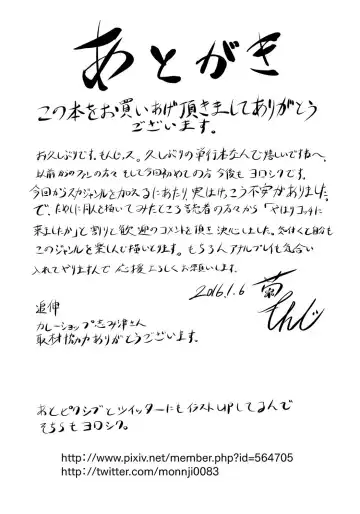 あとがき
この本をお買いあげ頂きましてありがとう
ございます。
お久しぶりです。もんじっス。久しぶりの単行本なんで嬉しいですねへ、
以前からのファンの方々もしくは今回初めての方今後もヨロシクです。
今回からスカジャンルを加えるにあたり実はけっこう不安がありました
で、ためしに同人を描いてみたところ読者の方々から「やはりコッチに
来ましたか」と割りと歓迎のコメントを頂き決心しました。
このジャンルを楽しんで描いとります。もちろんアナルプレイも気合い
入れてやりますんで応援よろしくお願いします。
2016.1.6
もんじ
追伸
カレーショップ志み津さん
取材協力ありがとうございます。
あとピクシブとツイッターにもイラストUPしてるんで
そちらもヨロシク。
http://www.pixiv.net/member.php?id=564705
http://twitter.com/monnji0083